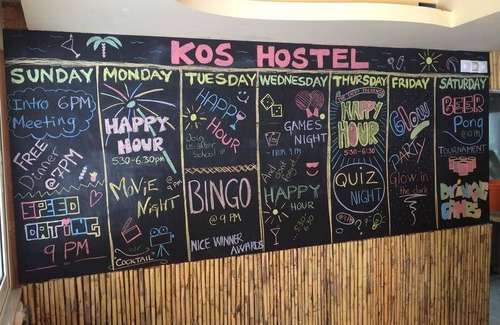 KOS HOSTEL
SUNDAY
Intro 6PM
Meeting
FREE
Dinner
@7PM
SPEED
DATING
9 PM
MONDAY
HAPPY
HOUR
5:30-6:30pm
MOVIE
NIGHT
COCKTAIL
TUESDAY
HAPPY
HOUR
Join
us after
School
BINGO
@ 9 PM
NICE WINNER
AWARDS
WEDNESDAY
GAMES
NIGHT
- FROM 9 PM
HAPPY
HOUR
5:30
6:30
THURSDAY
HAPPY
HOUR
5:30-6:30
QUIZ
NIGHT
FRIDAY
GLOW
PARTY
Glow in
the dark
SATURDAY
BEER
Pong
TOURNAMENT
DRINKING
GAMES